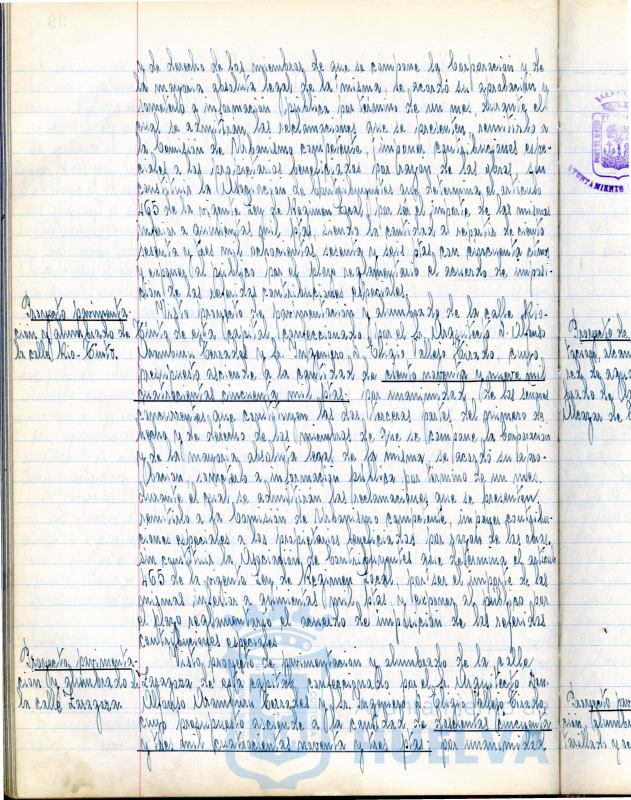 y de derecho de los miembros de que se compone la Corporación y de
la mayoria absoluta legal de la misma, se acordó su aprobación y
someterlo a información pública por termino de un mes durante el
cual se admitiran las reclamaciones que se presenten, remitirlo a
la Comisión de Urbanismo competente, imponer contribuciones espe-
ciales a los propietarios beneficiados por razon de las obras, sin
constituir la Asociación de Contribuyentes que determina el articulo
465 de la vigente Ley de Regimen Local, por ser el importe de las mismas
inferior a quinientas mil ptas siendo la cantidad a repartir de ciento
sesenta y tres mil ochocientas sesenta y seis ptas, con cincuenta cmos
y exponer al publico por el plazo reglamentario el acuerdo de imposi-
ción de las referidas contribuciones especiales.
Proyecto pavimenta-
ción y alumbrado de
la calle Rio-Tinto.
Visto proyecto de pavimentación y alumbrado de la calle Rio-
Tinto de esta Capital, confeccionado por el Sr. Arquitecto D. Alfonso
Aramburu Terrades y Sr. Ingeniero, D. Eligio Vallejo Tirado, cuyo
presupuesto asciende a la cantidad de ciento noventa y nueve mil
cincuenta mil ptas. por unanimidad de los señores
concurrentes que constituyen las dos terceras partes del primero de
hecho y de derecho de los miembros de que se compone la Corporación
y de la mayoria absoluta legal de la misma, se acordó su apro-
bación someterlo a información pública por termino de un mes
durante el cual se admitiran las reclamaciones que se presenten,
remitirlo a la Comisión de Urbanismo competente, imponer contribu-
ciones especiales a los propietarios beneficiados por razon de las obras,
sin constituir la Asociación de Contribuyentes que determina el articulo
465 de la vigente Ley de Regimen Local, por ser el importe de las
mismas inferior a quinientas mil ptas y exponer al publico por
el plazo reglamentario el acuerdo de imposición de las referidas
contribuciones especiales
Proyecto pavimenta-
ción y alumbrado de
la calle Zaragoza.
Visto proyecto de pavimentación y alumbrado de la calle
Zaragoza de esta capital, confeccionado por el Sr. Arquitecto Don
Alfonso Aramburu Terrades y Sr. Ingeniero D. Eligio Vallejo Tirado,
cuyo presupuesto asciende a la cantidad de doscientas cincuenta
y dos mil cuatrocientas noventa y tres ptas, por unanimidad
AYUNTAMIENTO
Proyecto de
Alcazar de
Proyecto pavi
ción, alumbra
HUELVA